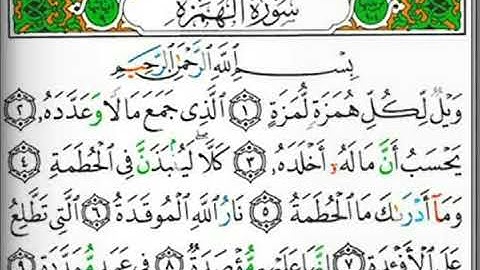 سُورَةُ الْهُمَزَةِ
بِسْمِ اللَّهِ الرَّحْمَٰنِ الرَّحِيمِ
وَيْلٌ لِّكُلِّ هُمَزَةٍ لُّمَزَةٍ ١ الَّذِي جَمَعَ مَالًا وَعَدَّدَهُۥ ٢
يَحْسَبُ أَنَّ مَالَهُۥٓ أَخْلَدَهُۥ ٣ كَلَّا ۖ لَيُنۢبَذَنَّ فِي الْحُطَمَةِ ٤
وَمَآ أَدْرَىٰكَ مَا الْحُطَمَةُ ٥ نَارُ اللَّهِ الْمُوقَدَةُ ٦ الَّتِي تَطَّلِعُ
عَلَى الْأَفْـِٔدَةِ ٧ إِنَّهَا عَلَيْهِم مُّؤْصَدَةٌ ٨ فِي عَمَدٍ مُّمَدَّدَةٍ ٩